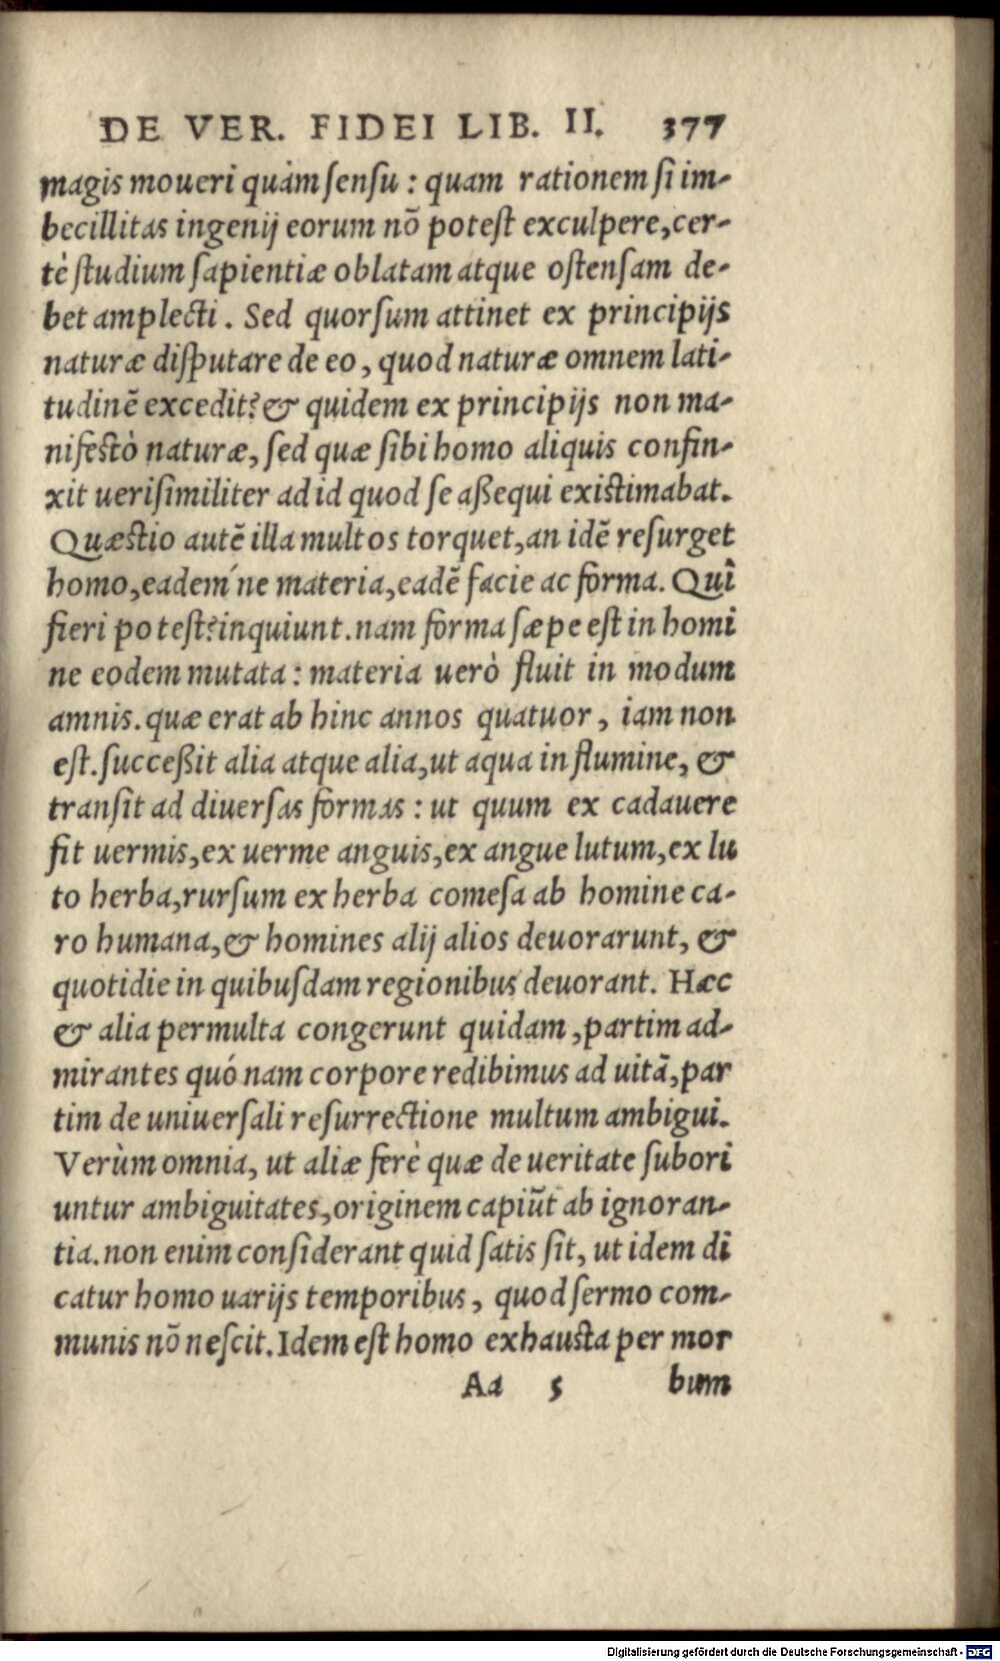 DE VER. FIDEI LIB. II. 377
magis moueri quàm sensu : quam rationem si im-
becillitas ingenij eorum nõ potest exculpere, cer-
tè studium sapientiæ oblatam atque ostensam de-
bet amplecti. Sed quorsum attinet ex principijs
naturæ disputare de eo, quod naturæ omnem lati-
tudinẽ excedit? & quidem ex principijs non ma-
nifestò naturæ, sed quæ sibi homo aliquis confin-
xit uerisimiliter ad id quod se aßequi existimabat.
Quæstio autẽ illa multos torquet, an idẽ resurget
homo, eadem´ne materia, eadẽ facie ac forma. Quî
fieri potest? inquiunt. nam forma sæpe est in homi
ne eodem mutata : materia uerò fluit in modum
amnis. quæ erat ab hinc annos quatuor, iam non
est. succeßit alia atque alia, ut aqua in flumine, &
transit ad diuersas formas : ut quum ex cadauere
fit uermis, ex uerme anguis, ex angue lutum, ex lu
to herba, rursum ex herba comesa ab homine ca-
ro humana, & homines alij alios deuorarunt, &
quotidie in quibusdam regionibus deuorant. Hæc
& alia permulta congerunt quidam, partim ad-
mirantes quónam corpore redibimus ad uitã, par
tim de uniuersali resurrectione multum ambigui.
Verùm omnia, ut aliæ ferè quæ de ueritate subori
untur ambiguitates, originem capiũt ab ignoran-
tia. non enim considerant quid satis sit, ut idem di
catur homo uarijs temporibus, quod sermo com-
munis nõ nescit. Idem est homo exhausta per mor
Aa 5 bum
Digitalisierung gefördert durch die Deutsche Forschungsgemeinschaft - DFG